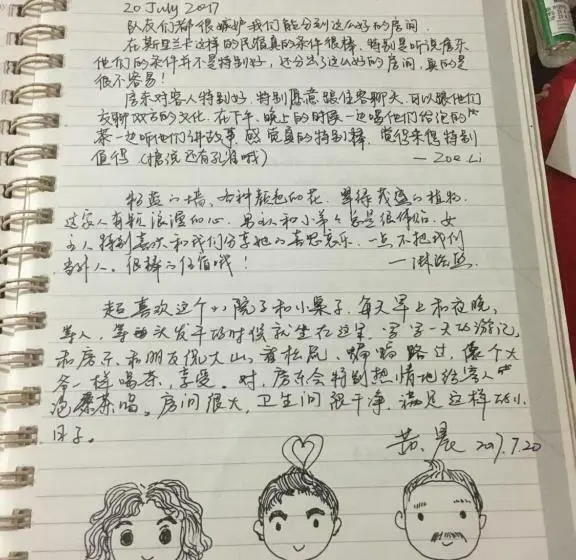 20 July 2017
队友们都很嫉妒我们能分到这么好的房间.
在斯里兰卡这样的民宿真的条件很棒,特别是听说房东
他们的条件并不是特别好,还分出了这么好的房间,真的是
很不容易!
房东对客人特别好,特别愿意跟住客聊天,可以跟他们
交聊双方的文化.在下午、晚上的时候一边喝他们给泡的
茶一边听他们讲故事,感觉真的特别棒,觉得来得特别
值得(据说还有孔雀哦) — Zoe Li
粉蓝的墙、各种颜色的花、翠绿茂盛的植物.
这家人有颗浪漫的心.男主人和小弟弟总是很体贴.女
主人特别喜欢和我们分享她的喜怒哀乐,一点不把我们
当外人.很棒的住宿哦!
超喜欢这个小院子和小桌子,每天早上和夜晚,
等人,等头发干的时候就坐在这里,写写一天的游记,
和房东和朋友侃大山,看松鼠、蝙蝠路过,像个大
爷一样喝茶,享受.对,房东会特别热情地给客人
泡茶喝。房间很大,卫生间很干净,满足这样的小
日子。
黄晨 2017.7.20